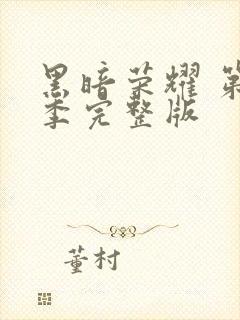 黑暗荣耀 第
季完整版
董村